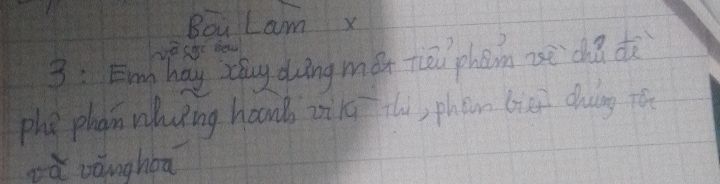 Bài Làm x
và sưu tầm
3: Em hãy xây dựng một tiểu phẩm về chủ đề
phê phán những hành vi kì thị, phân biệt chủng tộc
và vănghoá